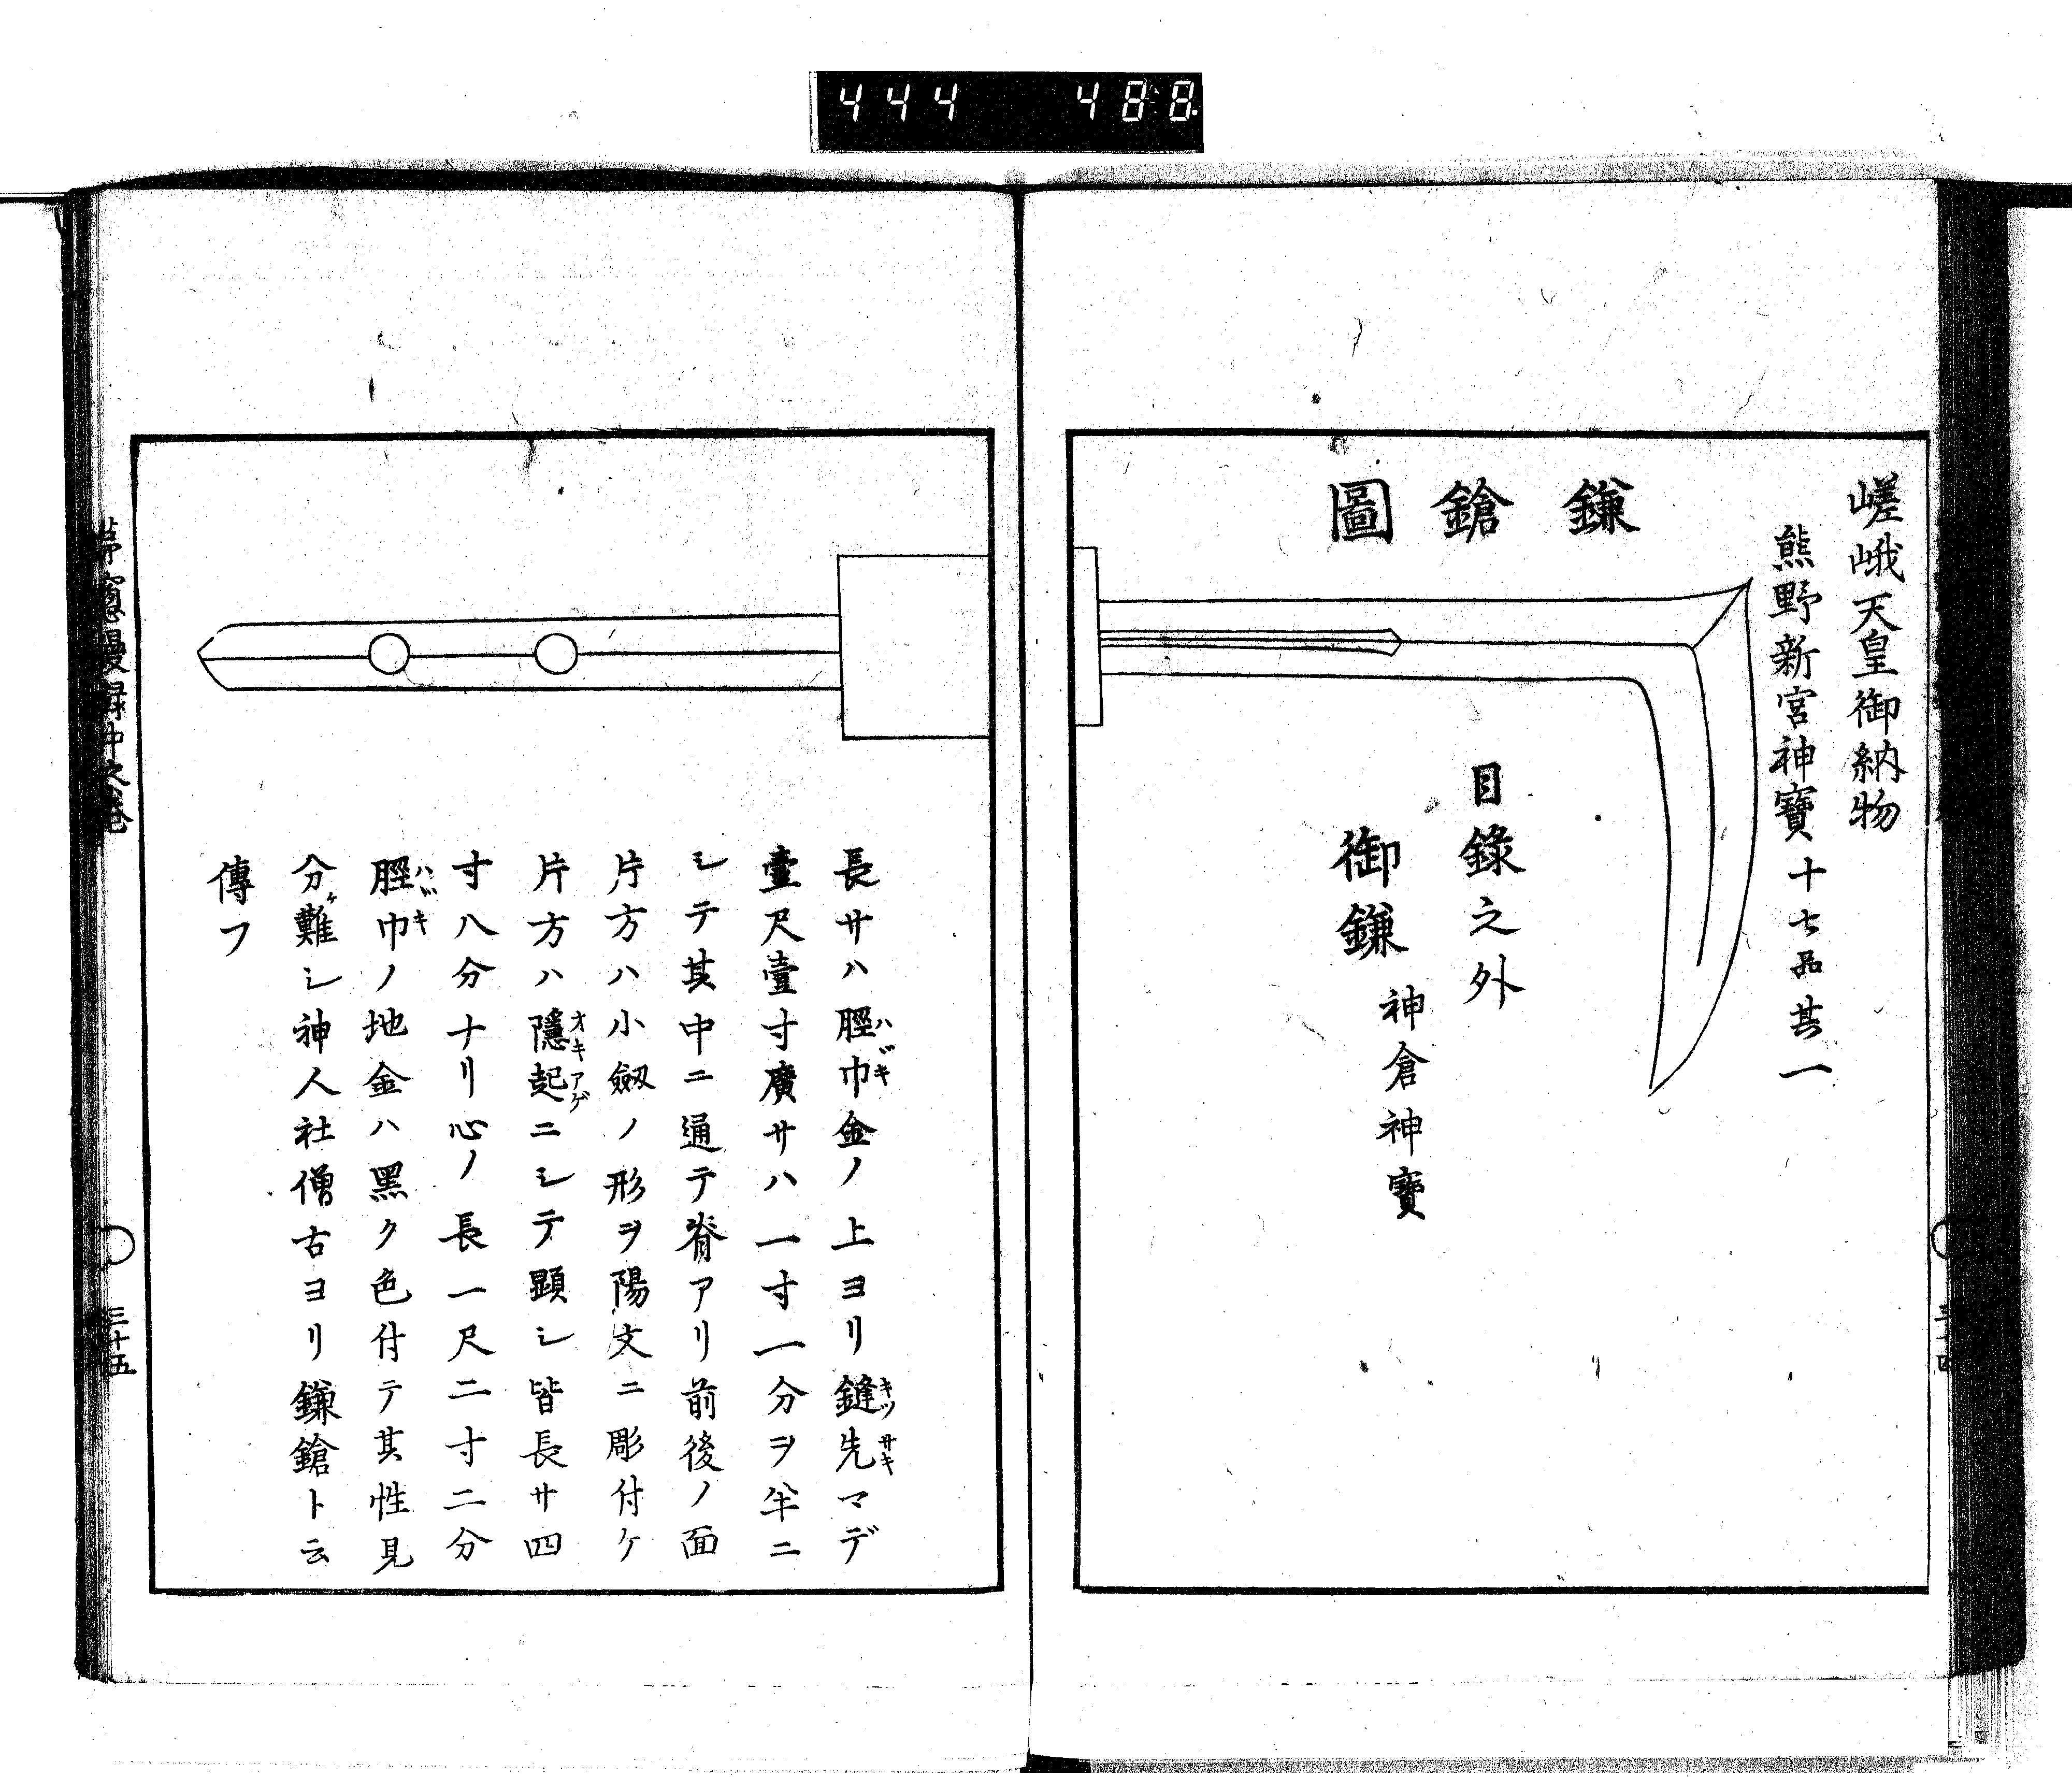 444 488
嵯峨天皇御納物
熊野新宮神寶十七品其一
鎌鎗圖
目錄之外
御鎌 神倉神寶
長サハ脛巾金ノ上ヨリ鏠先マデ
ハヾキ
キツサキ
壹尺壹寸廣サハ一寸一分ヲ半ニ
シテ其中ニ通テ脊アリ前後ノ面
片方ハ小劔ノ形ヲ陽文ニ彫付ケ
片方ハ隱起ニシテ顕シ皆長サ四
オキアゲ
寸八分ナリ心ノ長一尺二寸二分
脛巾ノ地金ハ黑ク色付テ其性見
ハヾキ
分ケ難シ神人社僧古ヨリ鎌鎗ト云
傳フ
中之巻
三十五